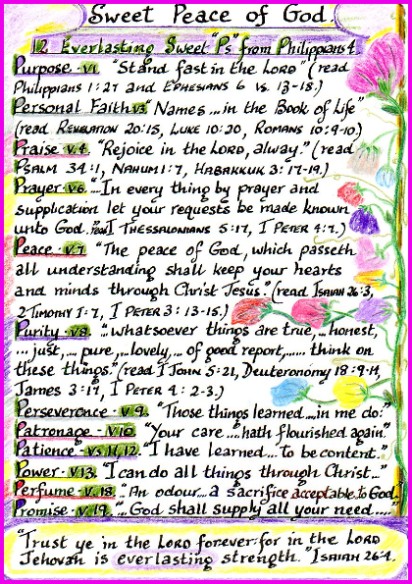 Sweet Peace of God.
12 Everlasting Sweet "Ps" from Philippians 4.
Purpose - v1. "Stand fast in the LORD" (read
Philippians 1:27 and EPHESIANS 6 vs. 13-18.)
Personal Faith v3 "Names ... in the Book of Life"
(read REVELATION 20:15, LUKE 10:20, ROMANS 10:9-10.)
Praise v.4. "Rejoice in the LORD, alway." (read
PSALM 34:1, NAHUM 1:7, HABAKKUK 3:17-19.)
Prayer v6. "...In every thing by prayer and
supplication let your requests be made known
unto God. I THESSALONIANS 5:17, I PETER 4:7.)
Peace v.7. "The peace of God, which passeth
all understanding shall keep your hearts
and minds through Christ Jesus." (read ISAIAH 26:3,
2 TIMOTHY 1:7, I PETER 3:13-15.)
Purity - v8. "...whatsoever things are true,... honest,
... just,... pure,...lovely,... of good report,...... think on
these things." (read I JOHN 5:21, Deuteronomy 18:9-14,
James 3:17, I PETER 4: 2-3.)
Perseverence - v.9. "Those things learned....in me do:"
Patronage - v10. "Your care ....hath flourished again"
Patience - vs. 11, 12. "I have learned... to be content."
Power - v.13. "I can do all things through Christ..."
Perfume - v.18. "An odour... a sacrifice acceptable to God."
Promise - v.19. "... God shall supply all your need....."
"Trust ye in the LORD forever: for in the LORD
Jehovah is everlasting strength." ISAIAH 26:4.